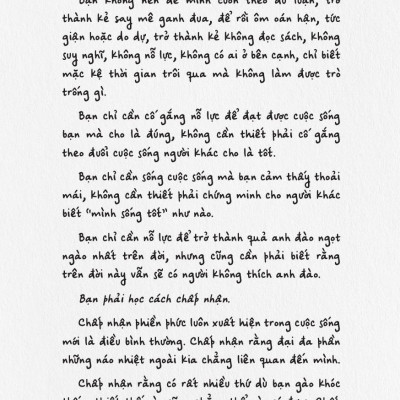 Bạn không nên để mình cuốn theo dư luận, trở
thành kẻ say mê ganh đua, để rồi ôm oán hận, tức
giận hoặc do dự, trở thành kẻ không đọc sách, không
suy nghĩ, không nỗ lực, không có ai ở bên cạnh, chỉ biết
mặc kệ thời gian trôi qua mà không làm được trò
trống gì.
Bạn chỉ cần cố gắng nỗ lực để đạt được cuộc sống
bạn mà cho là đúng, không cần thiết phải cố gắng
theo đuổi cuộc sống người khác cho là tốt.
Bạn chỉ cần sống cuộc sống mà bạn cảm thấy thoải
mái, không cần thiết phải chứng minh cho người khác
biết “mình sống tốt” như nào.
Bạn chỉ cần nỗ lực để trở thành quả anh đào ngọt
ngào nhất trên đời, nhưng cũng cần phải biết rằng
trên đời này vẫn sẽ có người không thích anh đào.
Bạn phải học cách chấp nhận.
Chấp nhận phiền phức luôn xuất hiện trong cuộc sống
mới là điều bình thường. Chấp nhận rằng đại đa phần
những náo nhiệt ngoài kia chẳng liên quan đến mình.
Chấp nhận rằng có rất nhiều thứ dù bạn gào khóc